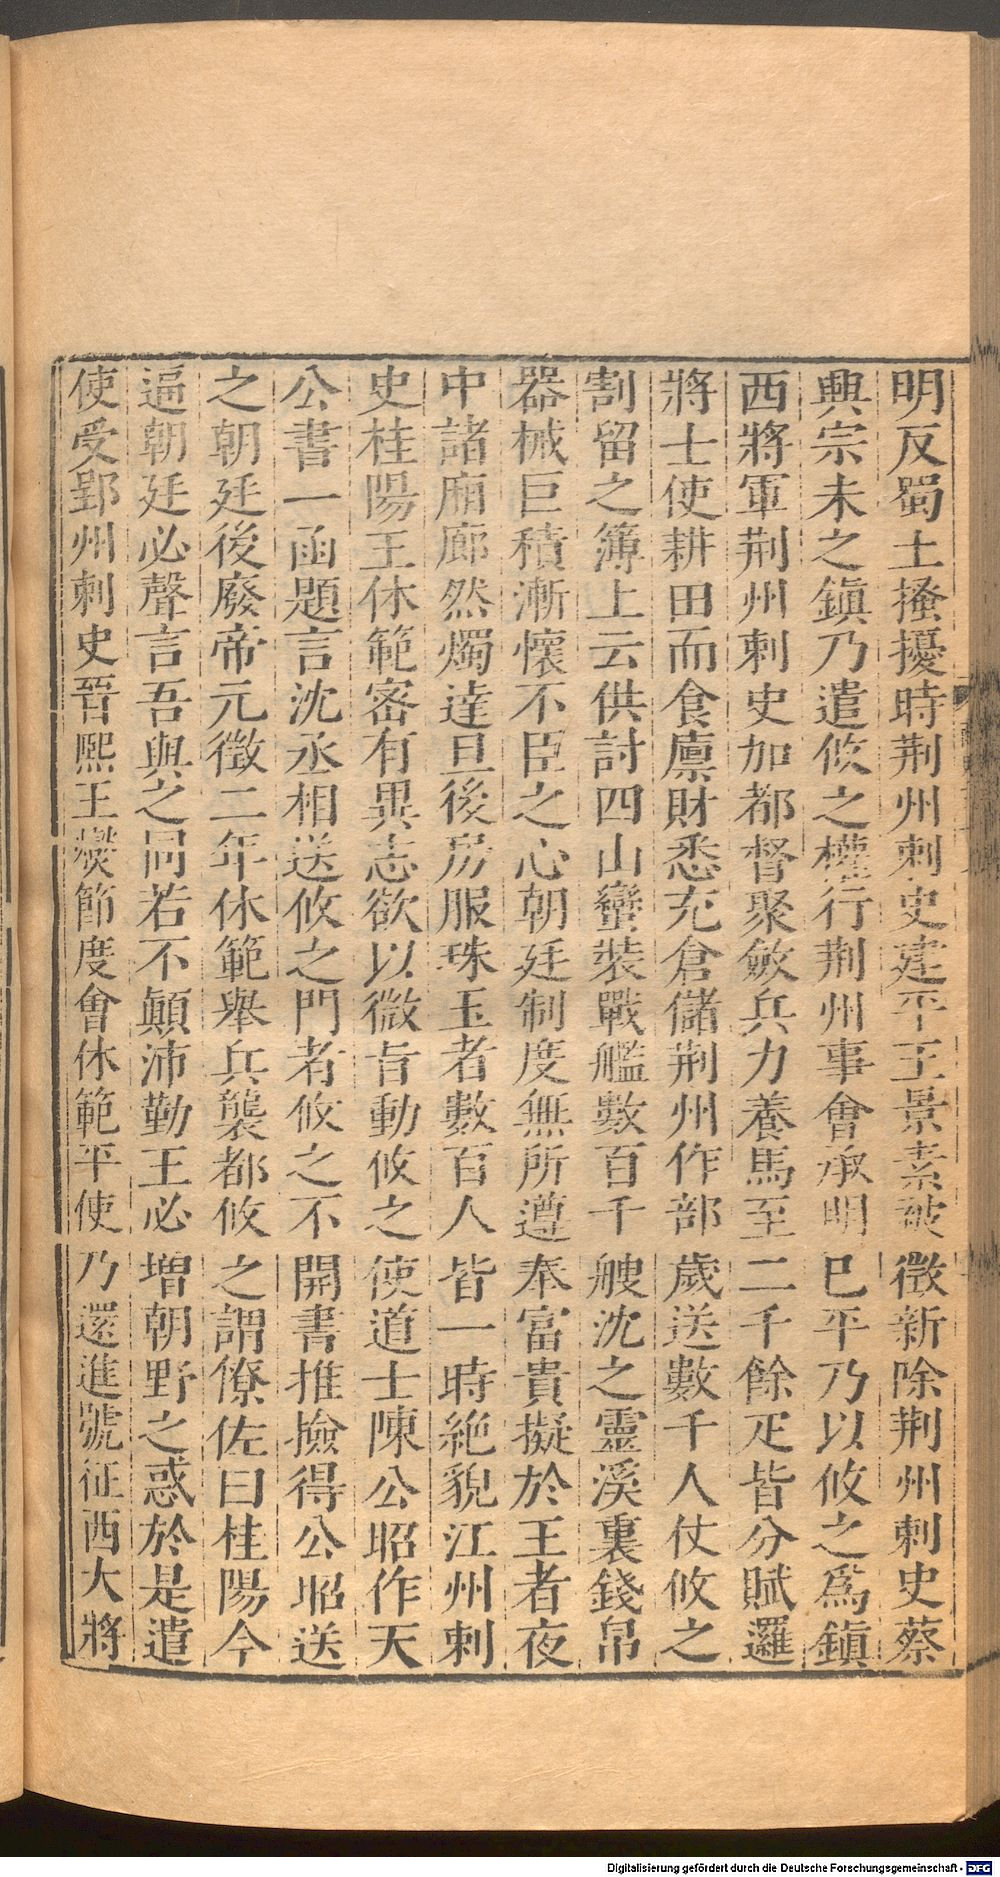 明反蜀土搔擾時荆州刺史建平王景素被徵新除荆州刺史蔡
興宗未之鎮乃遣攸之權行荆州事會承明巳平乃以攸之爲鎮
西將軍荆州刺史加都督聚斂兵力養馬至二千餘疋皆分賦邏
將士使耕田而食廪財悉充倉儲荆州作部歲送數千人仗攸之
割留之簿上云供討四山蠻裝戰艦數百千艘沈之靈溪裏錢帛
器械巨積漸懷不臣之心朝廷制度無所遵奉富貴擬於王者夜
中諸廂廊然燭達旦後房服珠玉者數百人皆一時絶貌江州刺
史桂陽王休範密有異志欲以微旨動攸之使道士陳公昭作天
公書一函題言沈丞相送攸之門者攸之不開書推撿得公昭送
之朝廷後廢帝元徽二年休範舉兵襲都攸之謂僚佐曰桂陽今
逼朝廷必聲言吾與之同若不顛沛勤王必增朝野之惑於是遣
使受郢州刺史晉熙王燮節度會休範平使乃還進號征西大將
Digitalisierung gefördert durch die Deutsche Forschungsgemeinschaft - DFG